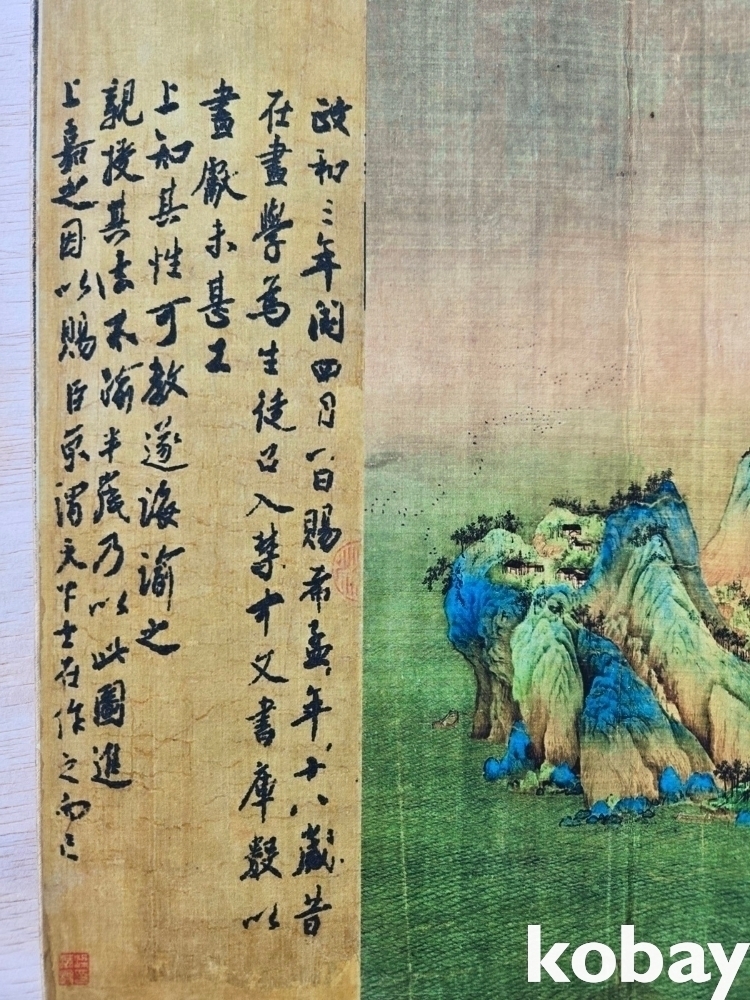 政和三年閏四月一日賜希孟年十八歲昔
在畫學為生徒召入禁中文書庫數以
畫獻未甚工
上知其性可教遂誨諭之
親授其法不踰半歲乃以此圖進
上嘉之因以賜臣京謂天下士在作之而已
kobay